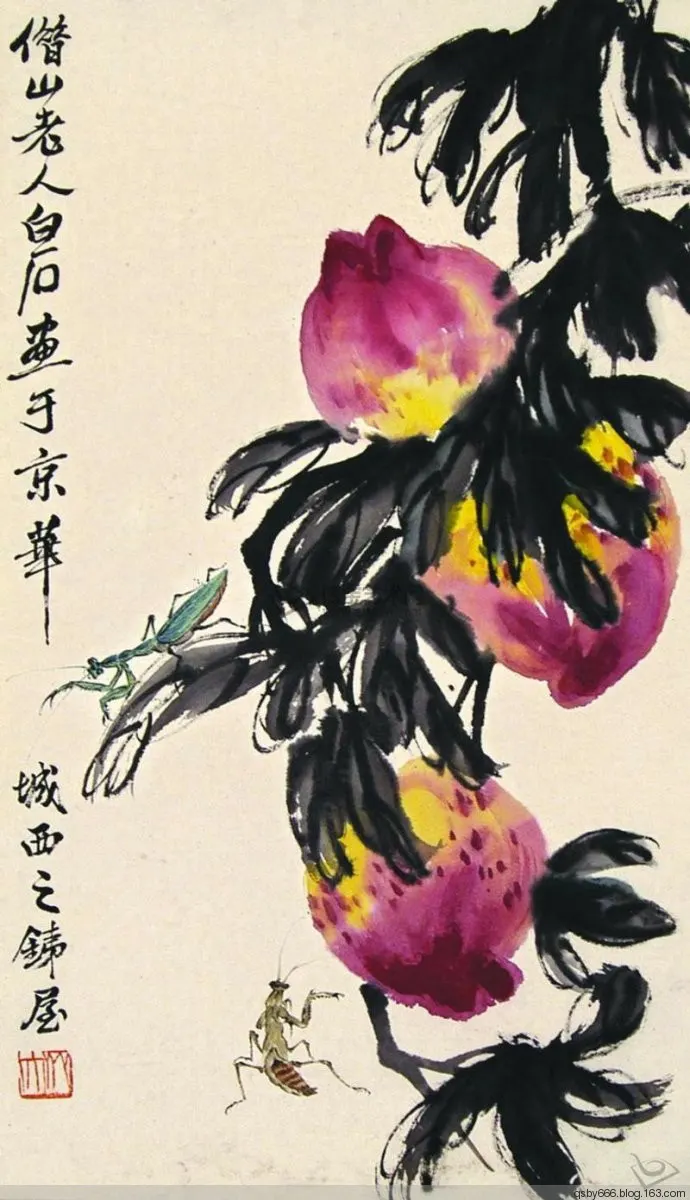 借山老人白石畫于京華城西之銕屋
qsby666.blog.163.com